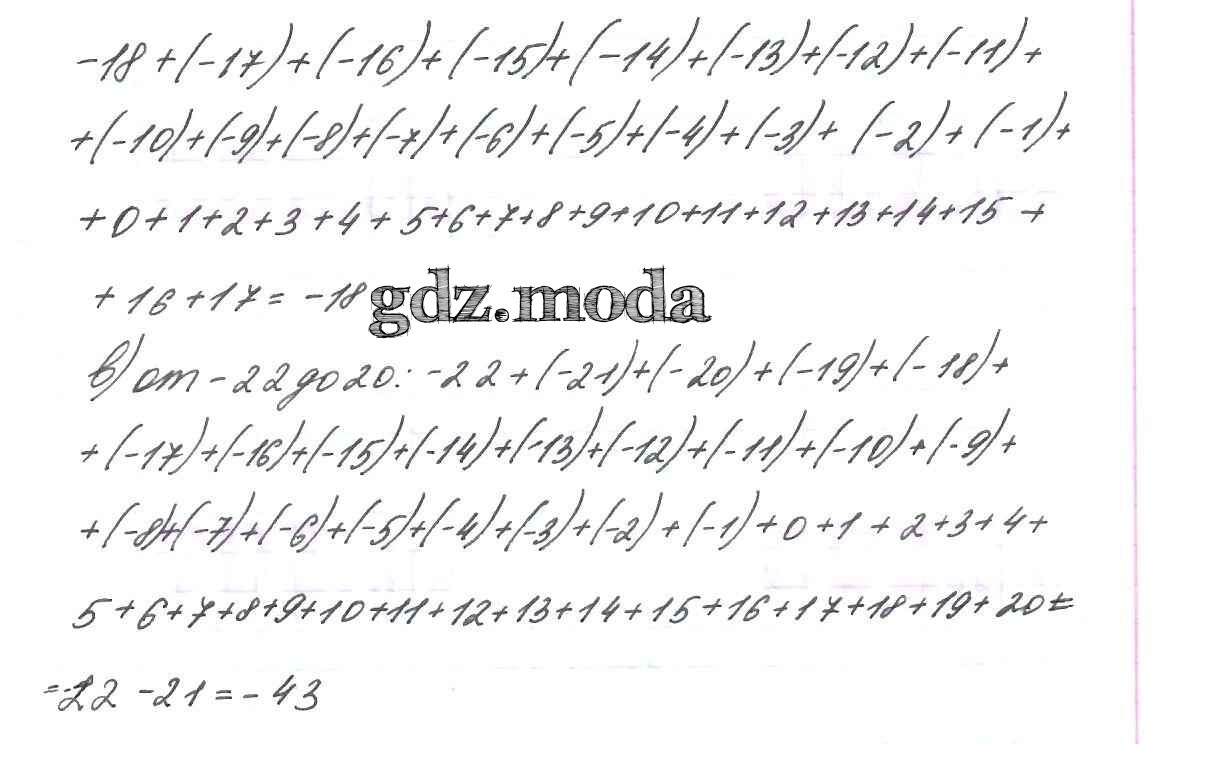 -18+(-17)+(-16)+(-15)+(-14)+(-13)+(-12)+(-11)+
+(-10)+(-9)+(-8)+(-7)+(-6)+(-5)+(-4)+(-3)+(-2)+(-1)+
+0+1+2+3+4+5+6+7+8+9+10+11+12+13+14+15+
+16+17=-18
gdz.moda
в) от -22 до 20: -22+(-21)+(-20)+(-19)+(-18)+
+(-17)+(-16)+(-15)+(-14)+(-13)+(-12)+(-11)+(-10)+(-9)+
+(-8)+(-7)+(-6)+(-5)+(-4)+(-3)+(-2)+(-1)+0+1+2+3+4+
5+6+7+8+9+10+11+12+13+14+15+16+17+18+19+20=
=-22-21=-43